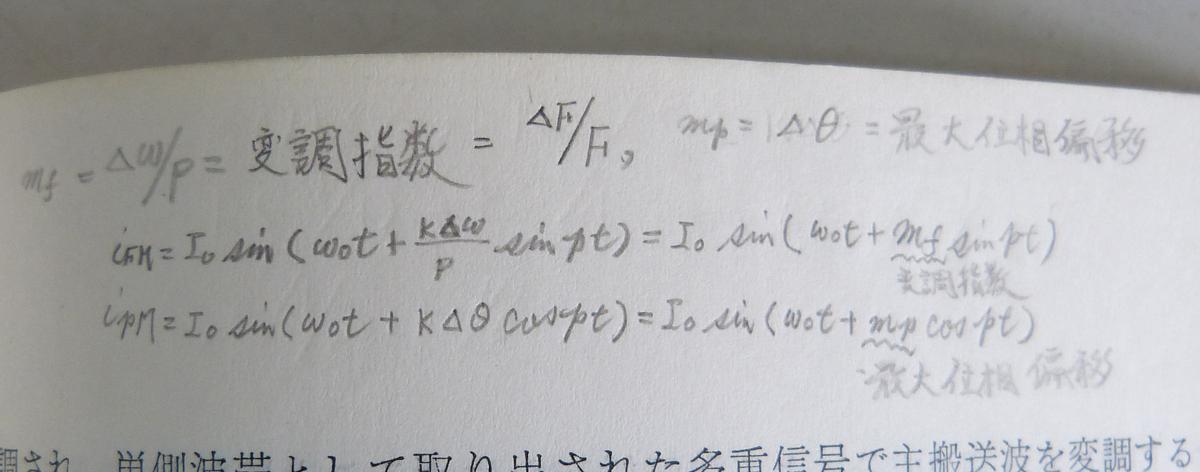 mf = Δω/p = 変調指数 = ΔF/F, mp = |Δθ| = 最大位相偏移
iFM = I₀ sin (ω₀t + KΔω/p sin pt) = I₀ sin (ω₀t + mf sin pt)
変調指数
ipM = I₀ sin (ω₀t + KΔθ cos pt) = I₀ sin (ω₀t + mp cos pt)
最大位相偏移
調され、単側波帯として取り出された多重信号で主搬送波を変調する